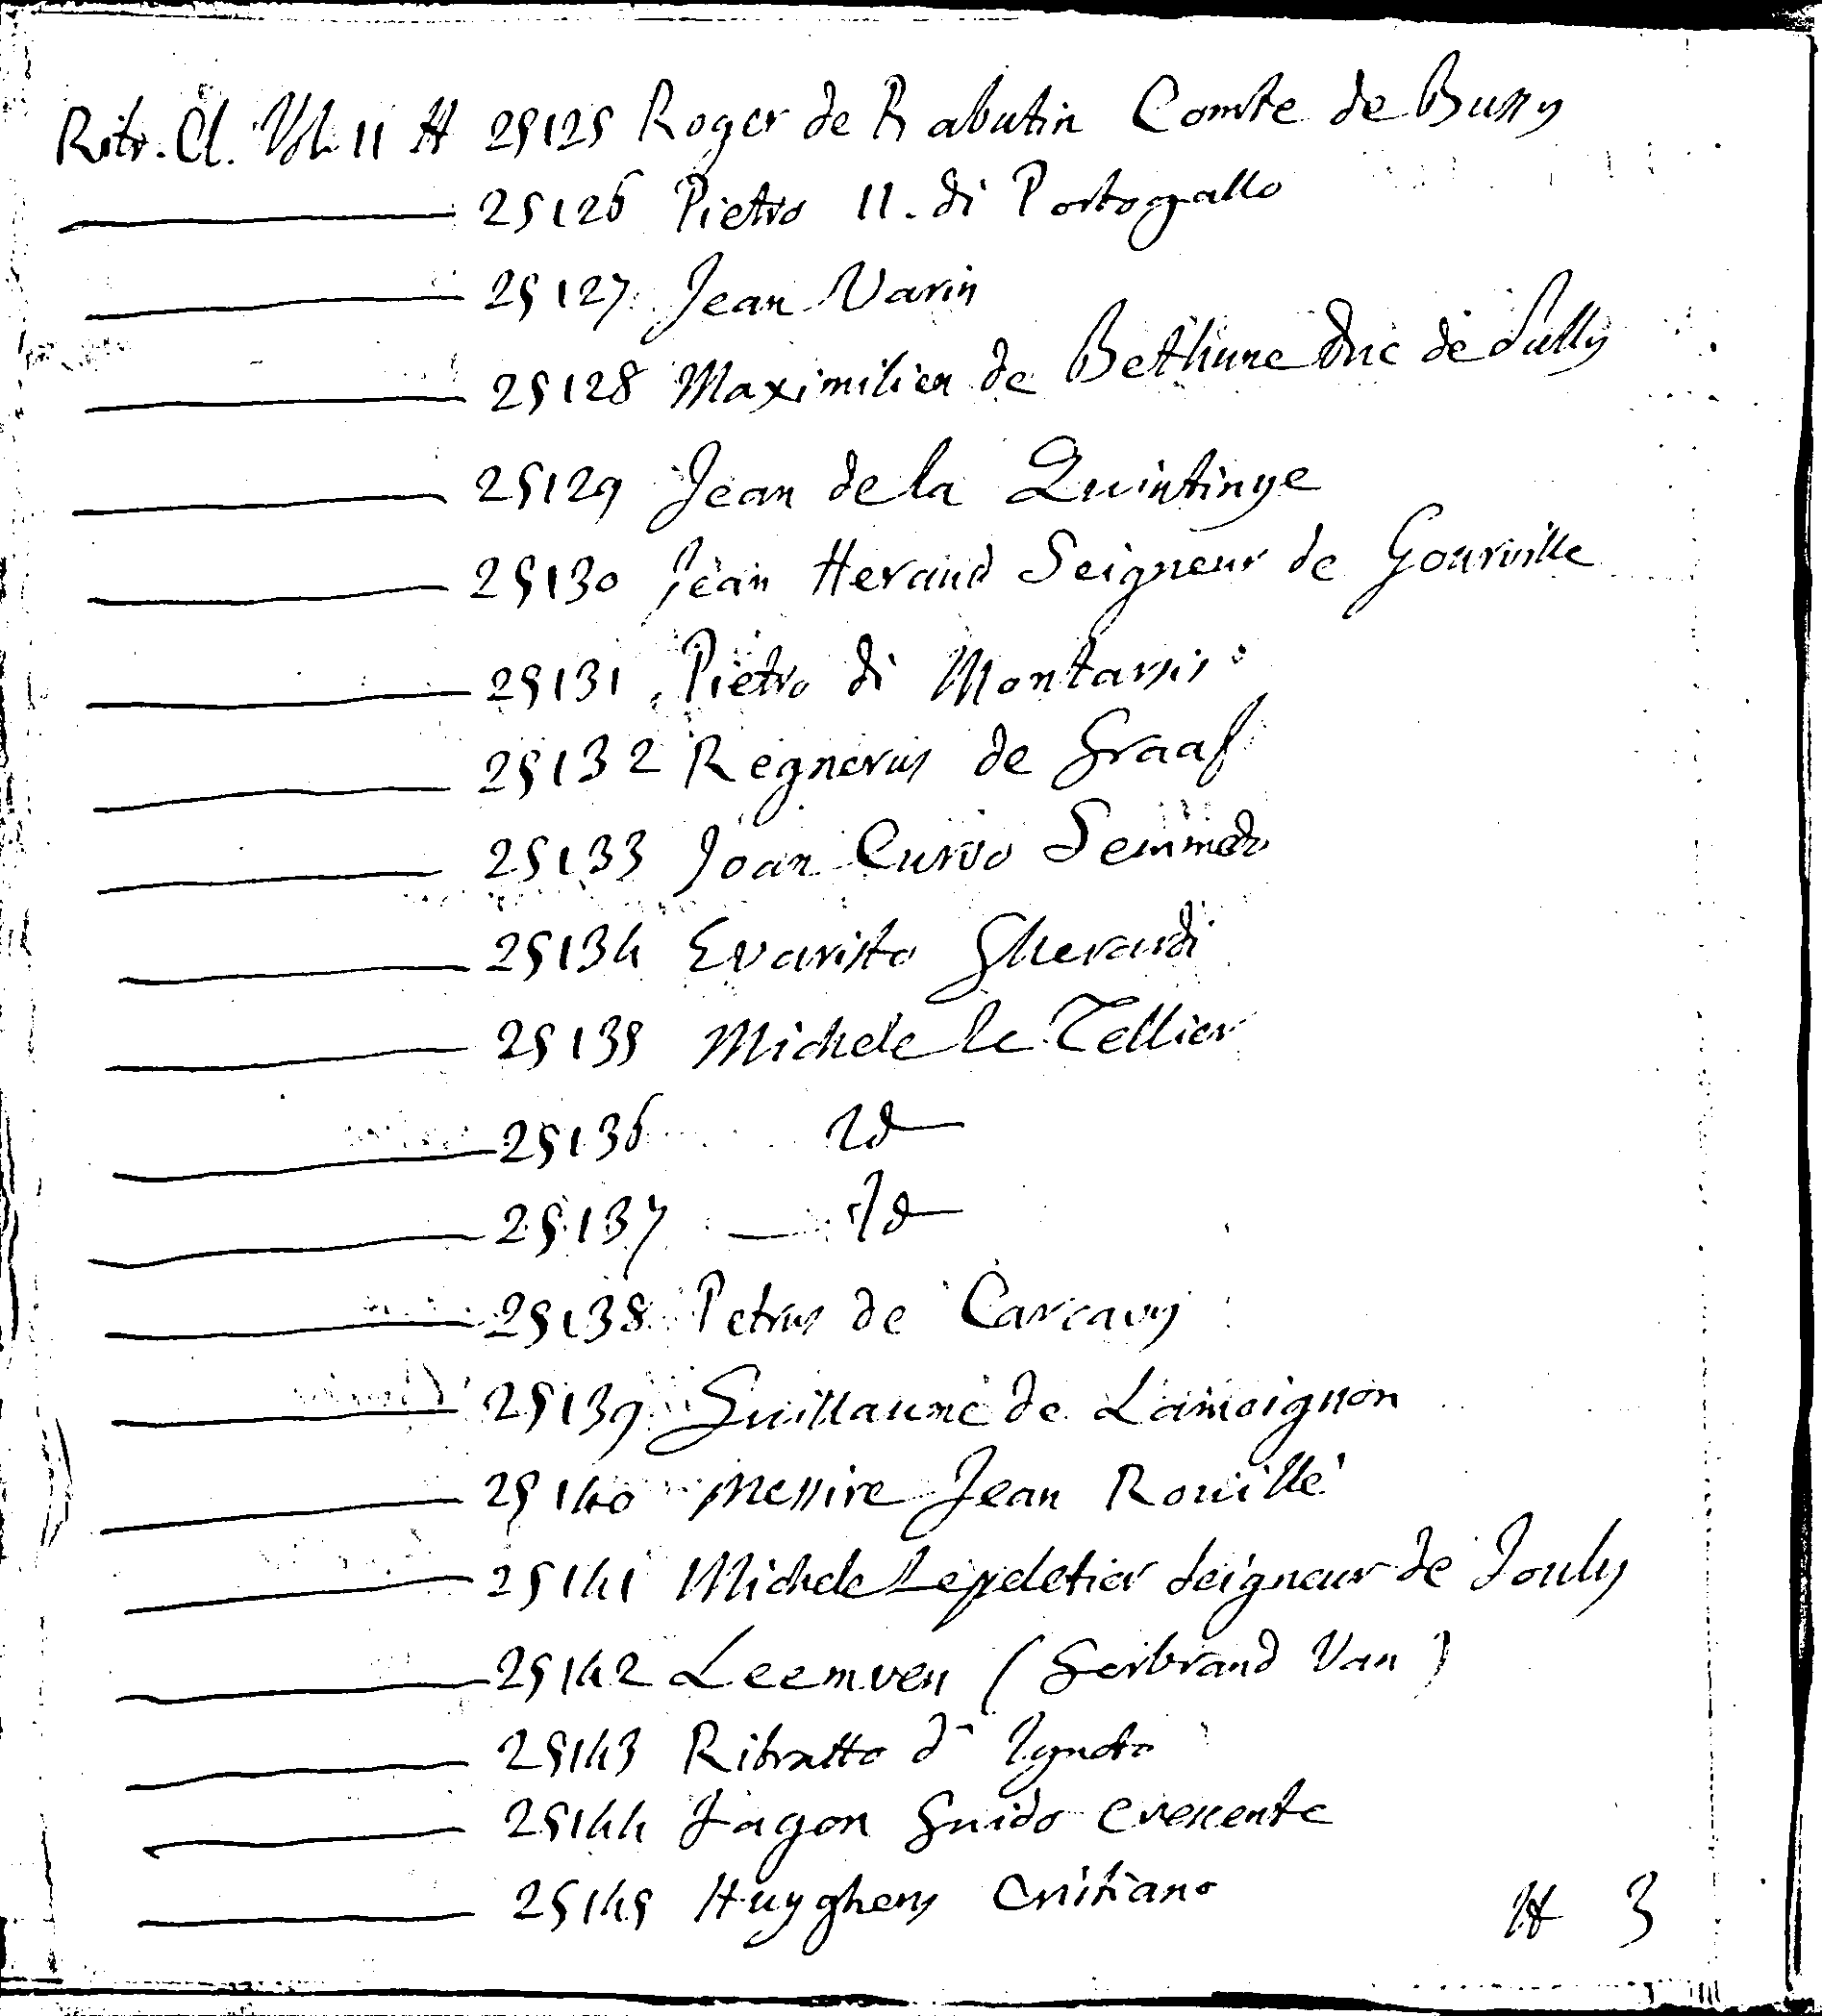 Ritr. Cl. Vol. 11 H 25125 Roger de Rabutin Comte de Bussy
25126 Pietro II. di Portogallo
25127 Jean Varin
25128 Maximilien de Bethune Duc de Sully
25129 Jean de la Quintinye
25130 Jean Heraud Seigneur de Gourville
25131 Pietro di Montarsis
25132 Regnerus de Graaf
25133 Joan Curvo Semmedo
25134 Evaristo Gherardi
25135 Michele le Tellier
25136 Id
25137 — Id
25138 Petrus de Carcavy
25139 Guillaume de Lamoignon
25140 Messire Jean Rouillé
25141 Michele Lepeletier Seigneur de Souly
25142 Leemven (Gerbrand Van)
25143 Ritratto d' Ignoto
25144 Fagon Guido Crescente
25145 Huyghens Cristiano
H 3